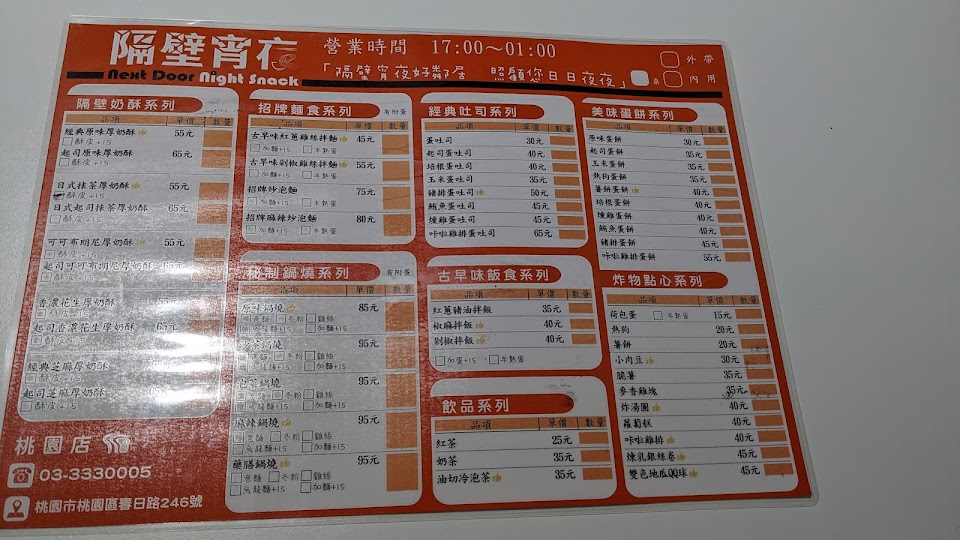 隔壁宵夜
Next Door Night Snack
營業時間 17:00～01:00
「隔壁宵夜好鄰居 照顧您日日夜夜」
外帶
內用
隔壁奶酥系列
品項 單價 數量
經典原味厚奶酥 55元
酥皮+15
起司原味厚奶酥 65元
酥皮+15
日式抹茶厚奶酥 55元
酥皮+15
日式起司抹茶厚奶酥 65元
酥皮+15
可可布朗尼厚奶酥 55元
酥皮+15
起司可可布朗尼厚奶酥 65元
酥皮+15
香濃花生厚奶酥 55元
酥皮+15
起司香濃花生厚奶酥 65元
酥皮+15
經典芝麻厚奶酥
酥皮+15
起司芝麻厚奶酥 65元
酥皮+15
桃園店
03-3330005
桃園市桃園區春日路246號
招牌麵食系列 有附蛋
品項 單價 數量
古早味紅蔥雞絲拌麵 45元
加麵+15 半熟蛋
古早味剁椒雞絲拌麵 55元
加麵+15 半熟蛋
招牌炒泡麵 75元
加麵+15 半熟蛋
招牌麻辣炒泡麵 80元
加麵+15 半熟蛋
秘制鍋燒系列 有附蛋
品項 單價 數量
原味鍋燒 85元
意麵 冬粉 雞絲
烏龍麵+15 加麵+15
沙茶鍋燒 95元
意麵 冬粉 雞絲
烏龍麵+15 加麵+15
泡菜鍋燒 95元
意麵 冬粉 雞絲
烏龍麵+15 加麵+15
麻辣鍋燒 95元
意麵 冬粉 雞絲
烏龍麵+15 加麵+15
藥膳鍋燒 95元
意麵 冬粉 雞絲
烏龍麵+15 加麵+15
經典吐司系列
品項 單價 數量
蛋吐司 30元
起司蛋吐司 40元
培根蛋吐司 40元
玉米蛋吐司 35元
豬排蛋吐司 50元
鮪魚蛋吐司 45元
燻雞蛋吐司 45元
咔啦雞排蛋吐司 65元
古早味飯食系列
品項 單價 數量
紅蔥豬油拌飯 35元
椒麻拌飯 40元
剁椒拌飯 40元
加蛋+15 半熟蛋
飲品系列
品項 單價 數量
紅茶 25元
奶茶 35元
油切冷泡茶 35元
美味蛋餅系列
品項 單價 數量
原味蛋餅 30元
起司蛋餅 35元
玉米蛋餅 35元
熱狗蛋餅 35元
薯餅蛋餅 40元
培根蛋餅 40元
燻雞蛋餅 40元
鮪魚蛋餅 40元
豬排蛋餅 45元
咔啦雞排蛋餅 55元
炸物點心系列
品項 單價 數量
荷包蛋 半熟蛋 15元
熱狗 20元
薯餅 20元
小肉豆 30元
脆薯 35元
麥香雞塊 35元
炸湯圓 40元
蘿蔔糕 40元
咔啦雞排 40元
煉乳銀絲卷 45元
雙色地瓜QQ球 45元